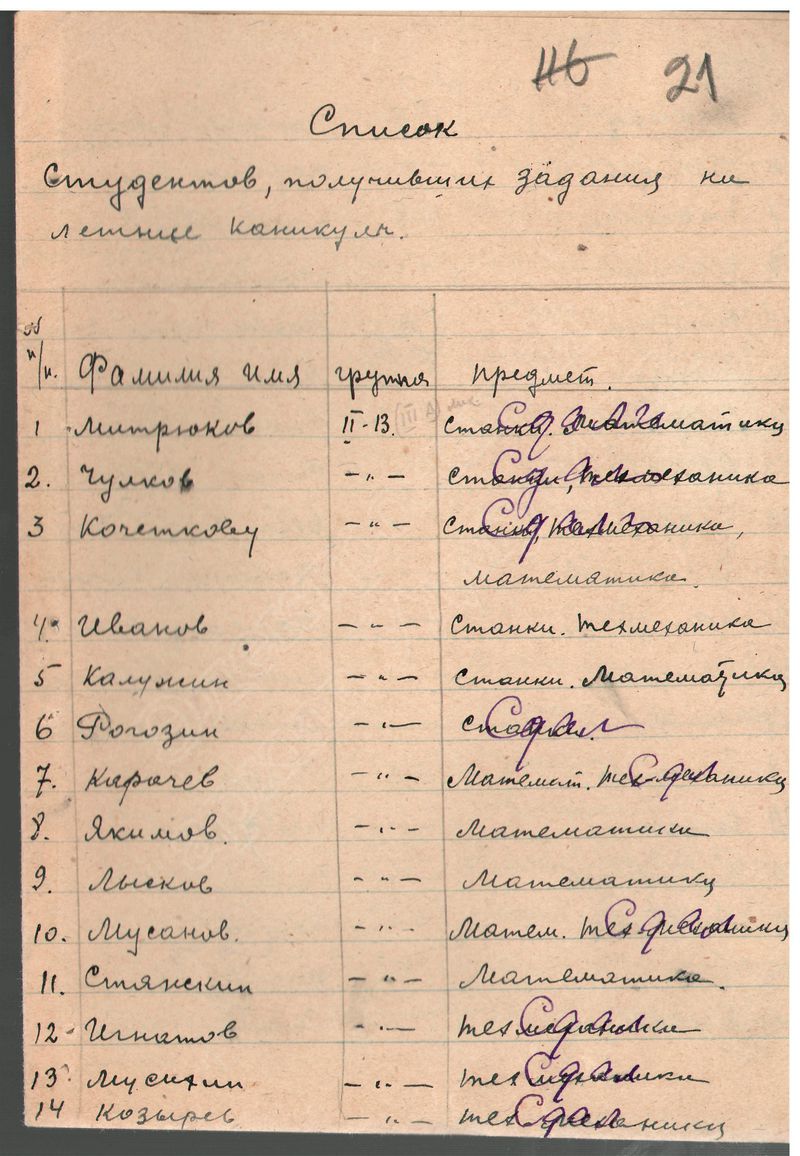 116 21
Список
Студентов, получивших задания на
летние каникулы.
№
п/п. Фамилия имя группа предмет.
1 Митрюков II-13. станки. математика Сдал
2. Чулков -"- станки, техмеханика Сдал
3 Кочетков -"- станки, техмеханика, Сдал
математика.
4. Иванов -"- станки. техмеханика
5 Калужин -"- станки. Математика
6 Рогозин -"- станки. Сдал
7. Карачев -"- Математ. техмеханика Сдал
8. Якимов. -"- Математика
9. Лысков -"- Математика
10. Мусанов. -"- Матем. техмеханика Сдал
11. -"- Математика.
12. Игнатов -"- техмеханика Сдал
13. Мусихин -"- техмеханика Сдал
14 Козырев -"- техмеханика Сдал